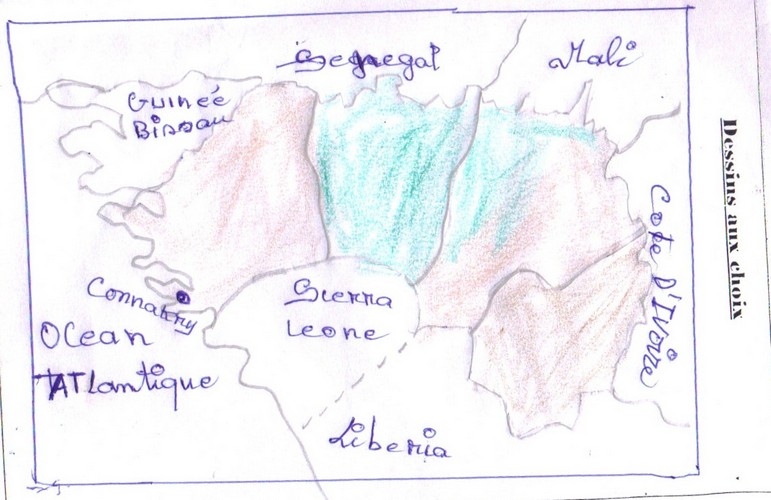 Senegal
Mali
Guineé
Bissau
Cote D'Ivoire
Connakry
Sierra
Leone
Ocean
ATLantique
Liberia
Dessins aux choix